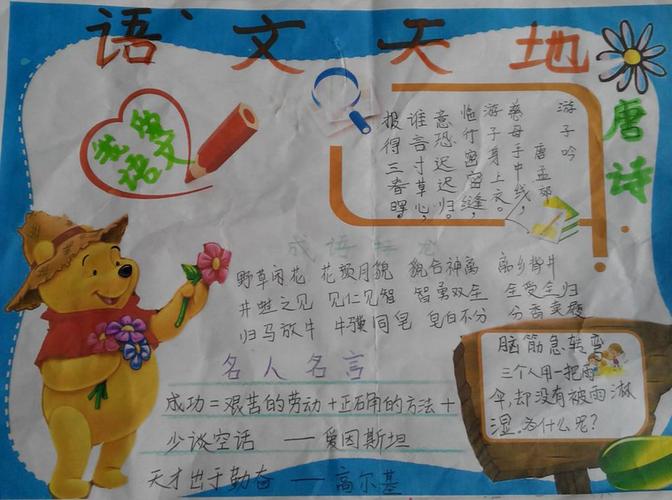 语文天地
语文
唐诗
游子吟
唐孟郊
慈母手中线，
游子身上衣。
临行密密缝，
意恐迟迟归。
谁言寸草心，
报得三春晖。
成语接龙
野草闲花 花颜月貌 貌合神离 离乡背井
井蛙之见 见仁见智 智勇双全 全受全归
归马放牛 牛骥同皂 皂白不分 分香卖履
名人名言
成功=艰苦的劳动+正确的方法+
少谈空话 ——爱因斯坦
天才出于勤奋 ——高尔基
脑筋急转弯
三个人用一把雨
伞,却没有被雨淋
湿.为什么呢?